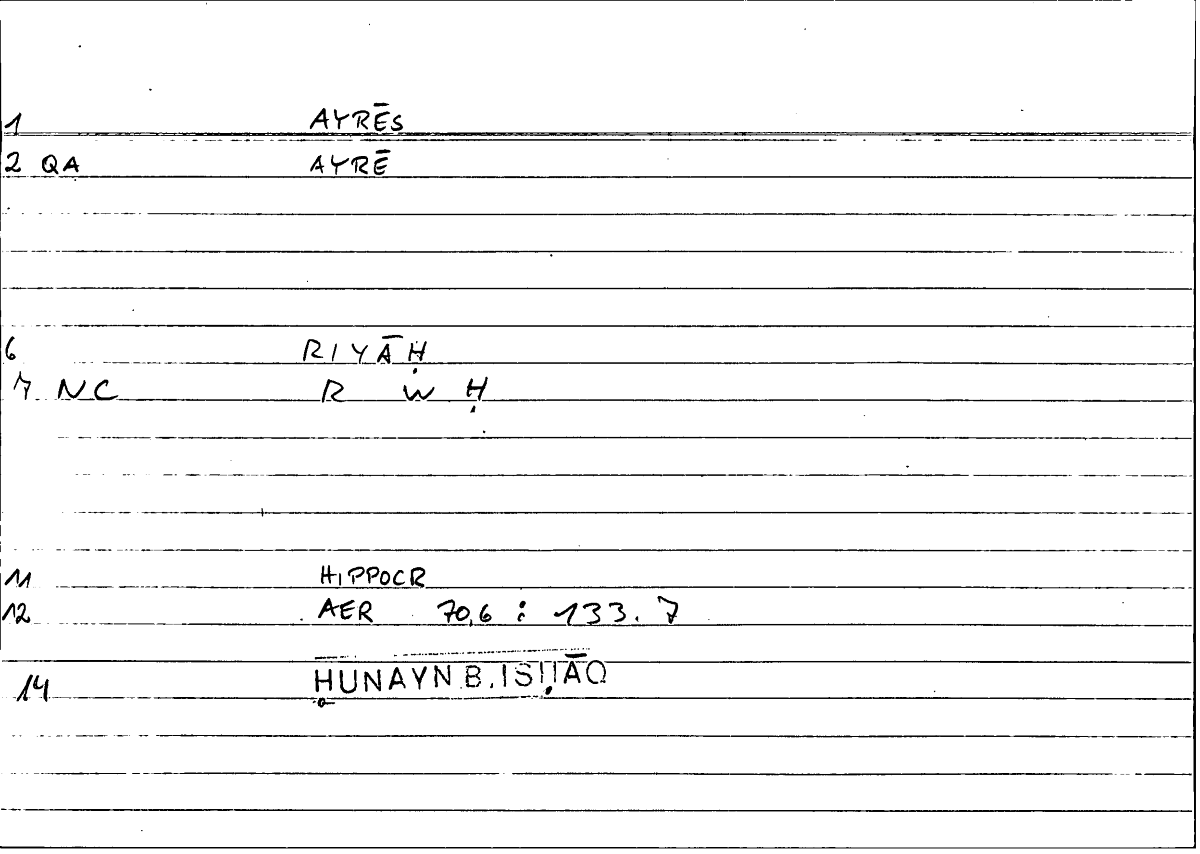 1 AYRĒS
2 QA AYRĒ
6 RIYĀḤ
7 NC R W Ḥ
11 HIPPOCR
12 AER 70,6 : 133.7
14 ḤUNAYN B. ISḤĀQ